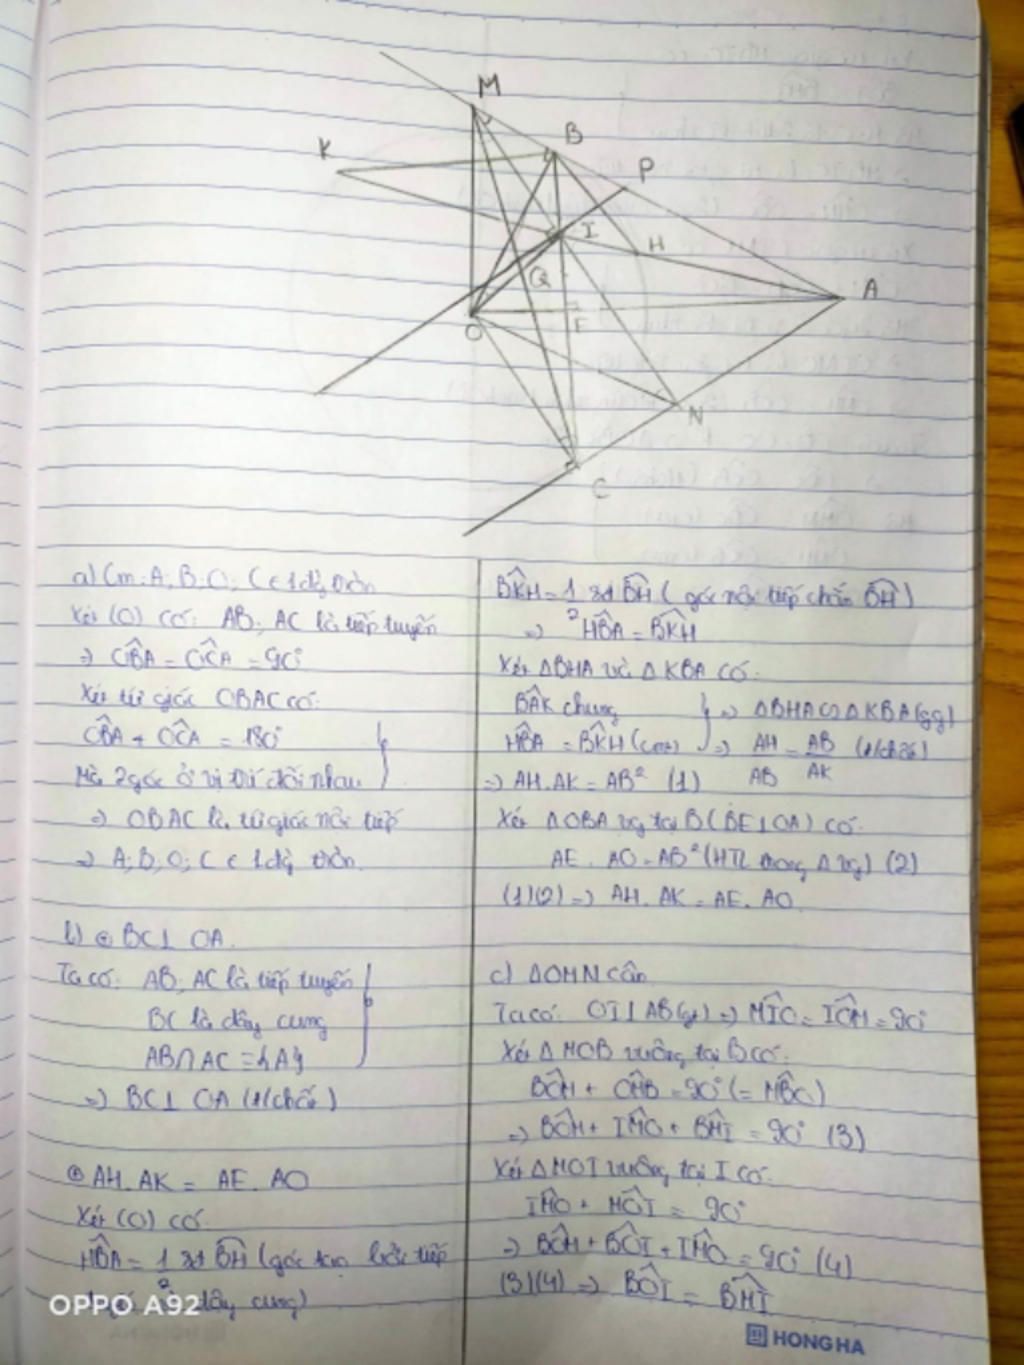 M
B
K
P
I
H
Q
A
O
E
N
C
a) Cm: A, B, O, C ∈ 1 đg tròn
Xét (O) có: AB, AC là tiếp tuyến
⇒ OBA = OCA = 90°
Xét tứ giác OBAC có:
OBA + OCA = 180°
Mà 2 góc ở vị trí đối nhau
⇒ OBAC là tứ giác nội tiếp
⇒ A, B, O, C ∈ 1 đg tròn
b) ⊕ BC ⊥ OA.
Ta có: AB, AC là tiếp tuyến
BC là dây cung
AB ∩ AC = {A}
⇒ BC ⊥ OA (t/chất)
⊕ AH. AK = AE. AO
Xét (O) có:
HBA = 1/2 sđ BH (góc tạo bởi tiếp
dây cung)
BKH = 1/2 sđ BH (góc nội tiếp chắn BH)
⇒ HBA = BKH
Xét ΔBHA và ΔKBA có:
BAK chung
⇒ ΔBHA ∽ ΔKBA (gg)
HBA = BKH (cmt)
⇒ AH/AB = AB/AK (t/chất)
⇒ AH. AK = AB² (1)
Xét ΔOBA vg tại B (BE ⊥ OA) có:
AE. AO = AB² (HTL trong Δ vg) (2)
(1)(2) ⇒ AH. AK = AE. AO
c) ΔOMN cân
Xét ΔMOB vuông tại B có:
BOM + OMB = 90° (= MBO)
⇒ BOM + IMO + BMI = 90° (3)
Xét ΔMOI vuông tại I có:
IMO + MOI = 90°
⇒ BOM + BOI + IMO = 90° (4)
(3)(4) ⇒ BOI = BMI
OPPO A92
HONG HA